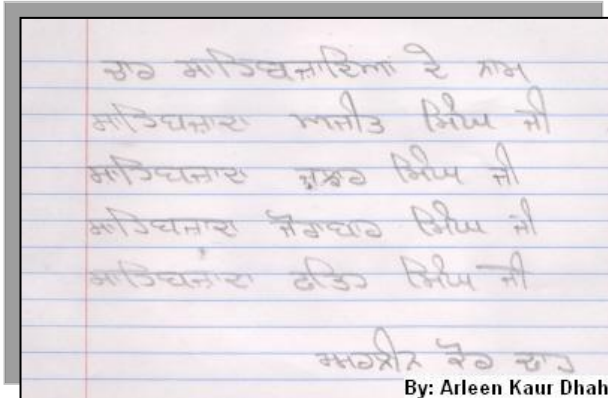 ਚਾਰ ਸਾਹਿਬਜ਼ਾਦਿਆਂ ਦੇ ਨਾਮ
ਸਾਹਿਬਜ਼ਾਦਾ ਅਜੀਤ ਸਿੰਘ ਜੀ
ਸਾਹਿਬਜ਼ਾਦਾ ਜੁਝਾਰ ਸਿੰਘ ਜੀ
ਸਾਹਿਬਜ਼ਾਦਾ ਜੋਰਾਵਰ ਸਿੰਘ ਜੀ
ਸਾਹਿਬਜ਼ਾਦਾ ਫਤਿਹ ਸਿੰਘ ਜੀ
ਕੌਰ ਢਾਹ
By: Arleen Kaur Dhah